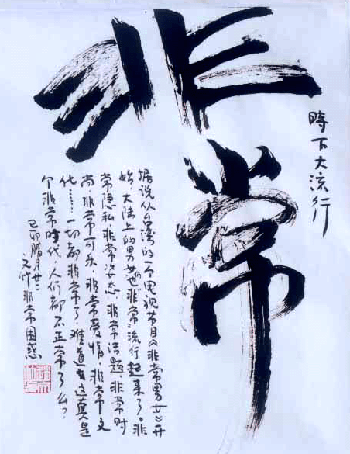 非常
時下大流行
据说从台湾的一个电视节目《非常男女》开
始,大陆上的男女也非常流行起来了。非
常隐私、非常心态、非常话题、非常时
尚、非常可乐、非常爱情、非常文
化……一切都非常了,难道这真是
个非常时代,人们都不正常了么?
己卯腊月廿二
非常困惑